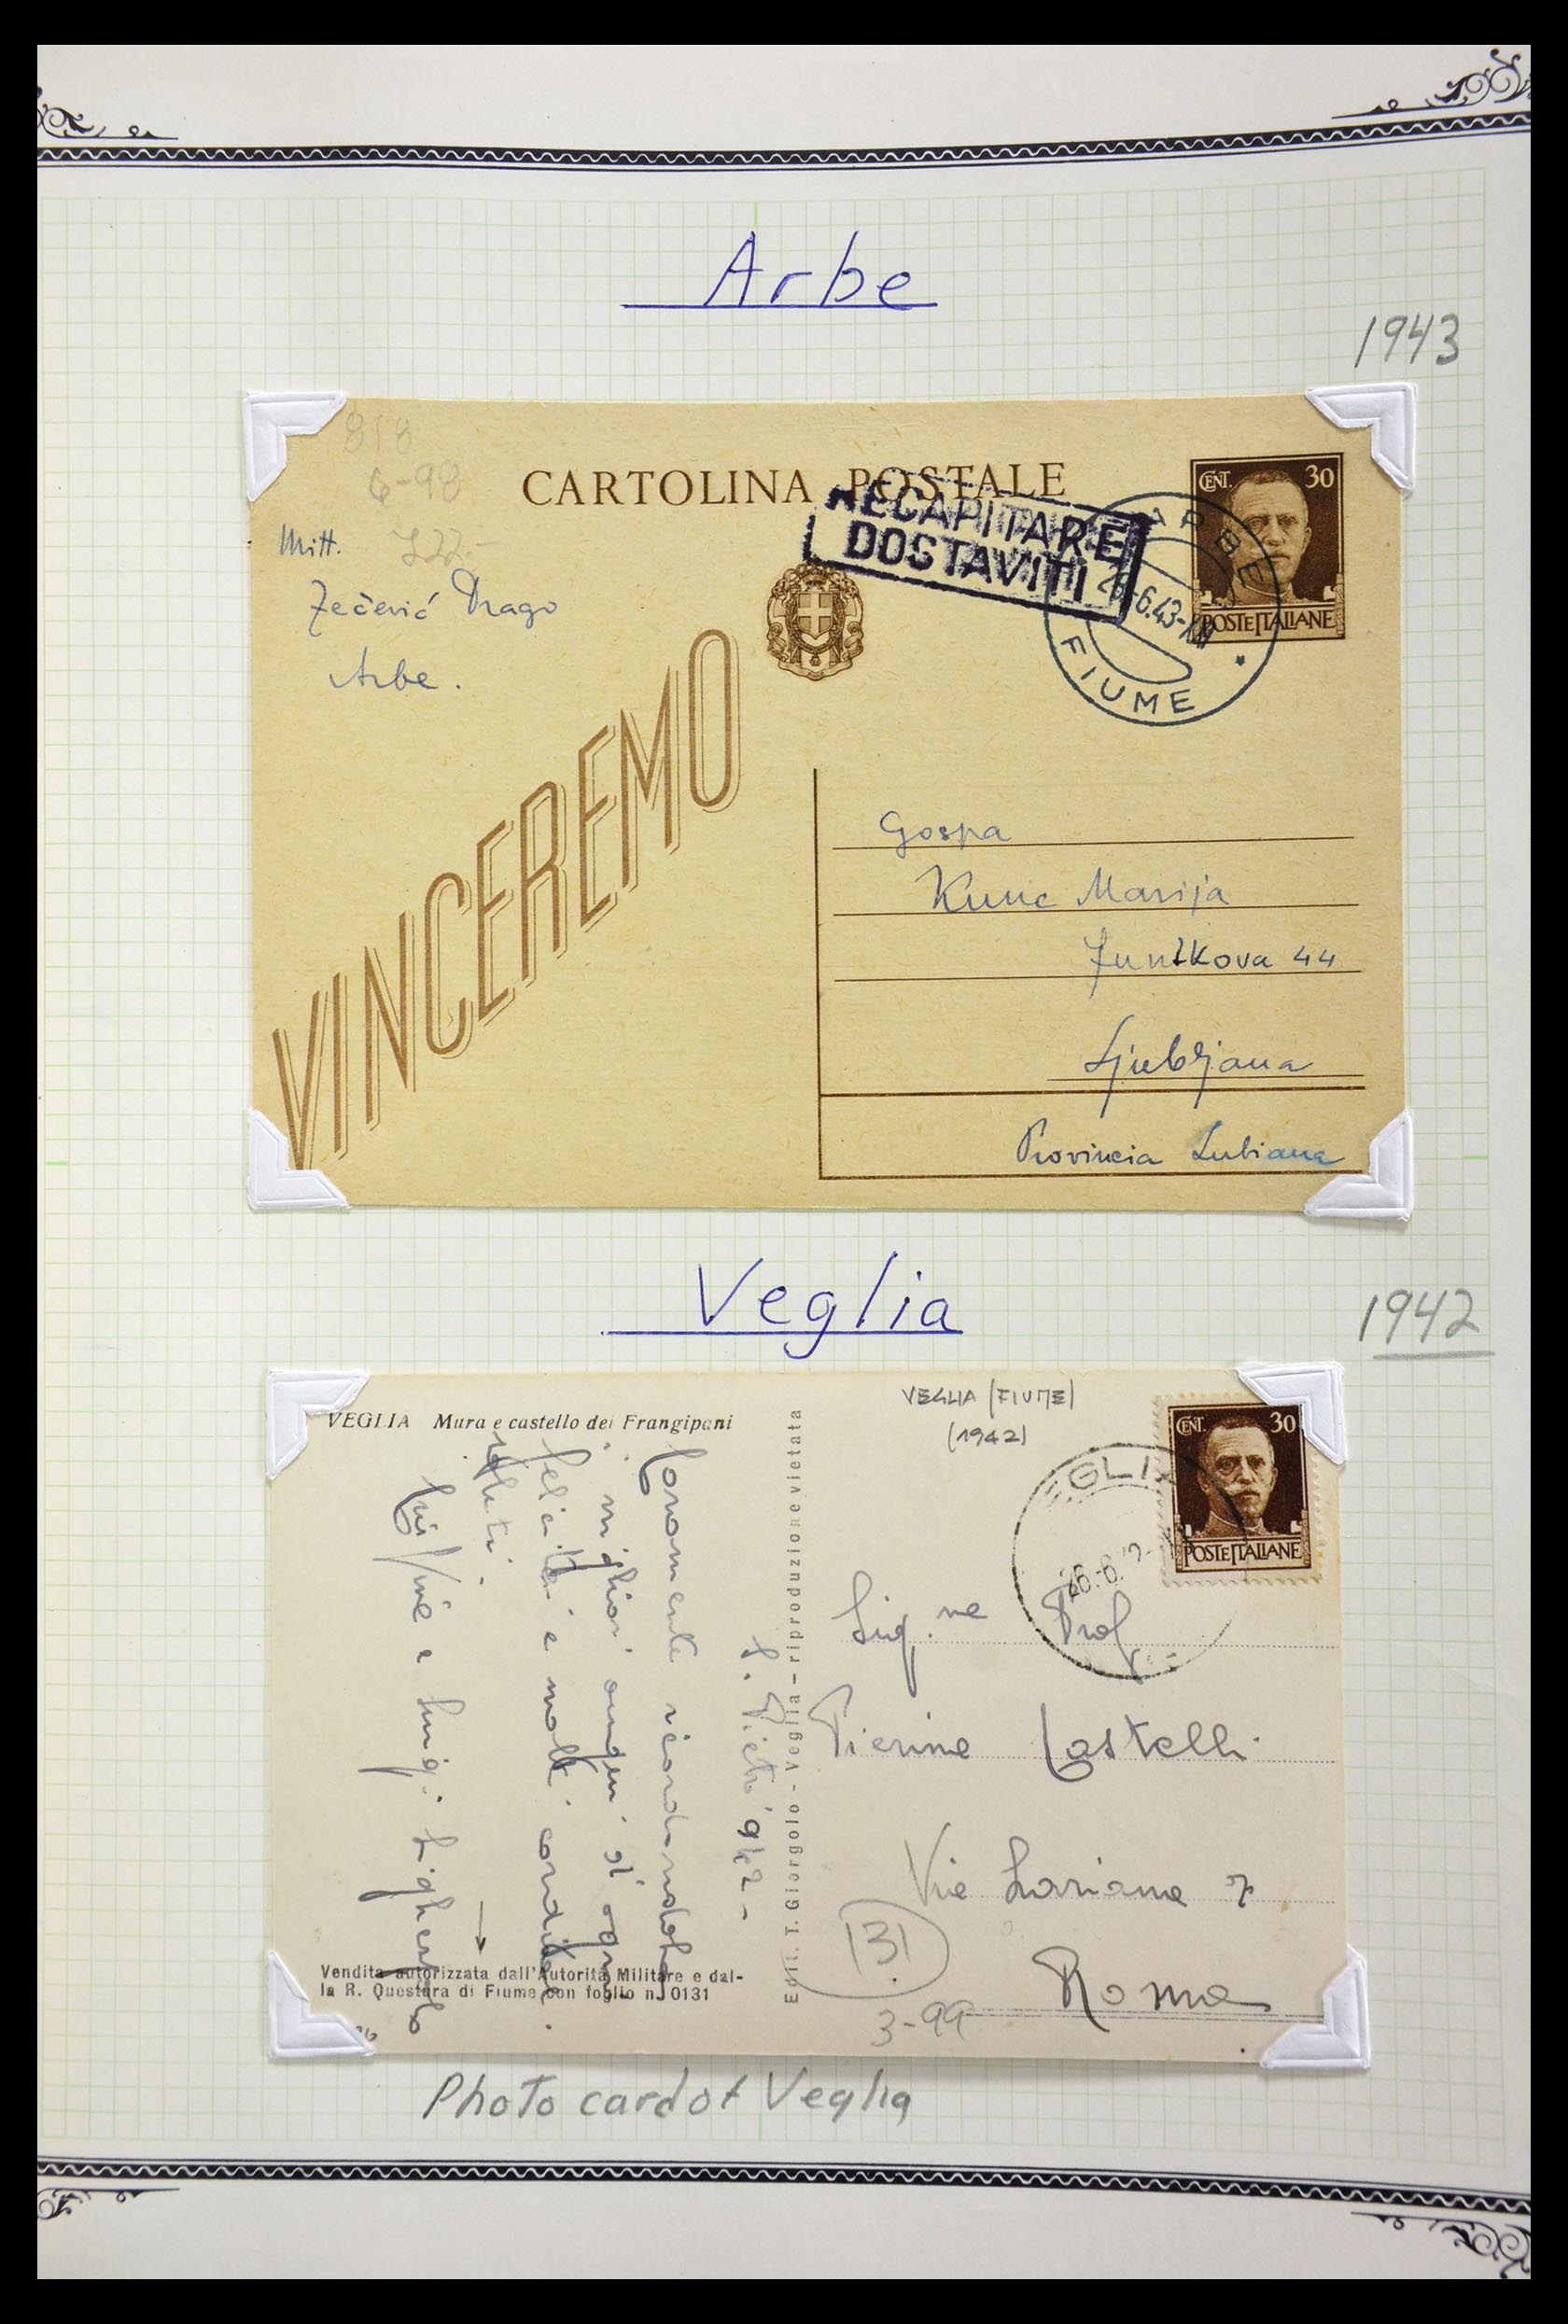 Arbe
1943
818
6-98
CARTOLINA POSTALE
CENT. 30
POSTE ITALIANE
RECAPITARE
DOSTAVITI
ARBE
26.6.43-XXI
FIUME
Mitt.
Zečević Drago
Arbe.
VINCEREMO
Gospa
Kunc Marija
44
Ljubljana
Provincia Lubiana
Veglia
1942
VEGLIA Mura e castello dei Frangipani
VEGLIA (FIUME)
(1942)
CENT. 30
POSTE ITALIANE
EGLIA
26.-6.
S. Pietro 942-
i migliori auguri di ogni
felicità e molti cordiali
saluti.
e Luigi
Edit. T. Giorgolo - Veglia - riproduzione vietata
Prof
Pierina Castelli
Via Lariana 7
Roma
131
3-99
Vendita autorizzata dall'Autorità Militare e dal-
la R. Questura di Fiume con foglio n. 0131
Photo card of Veglia